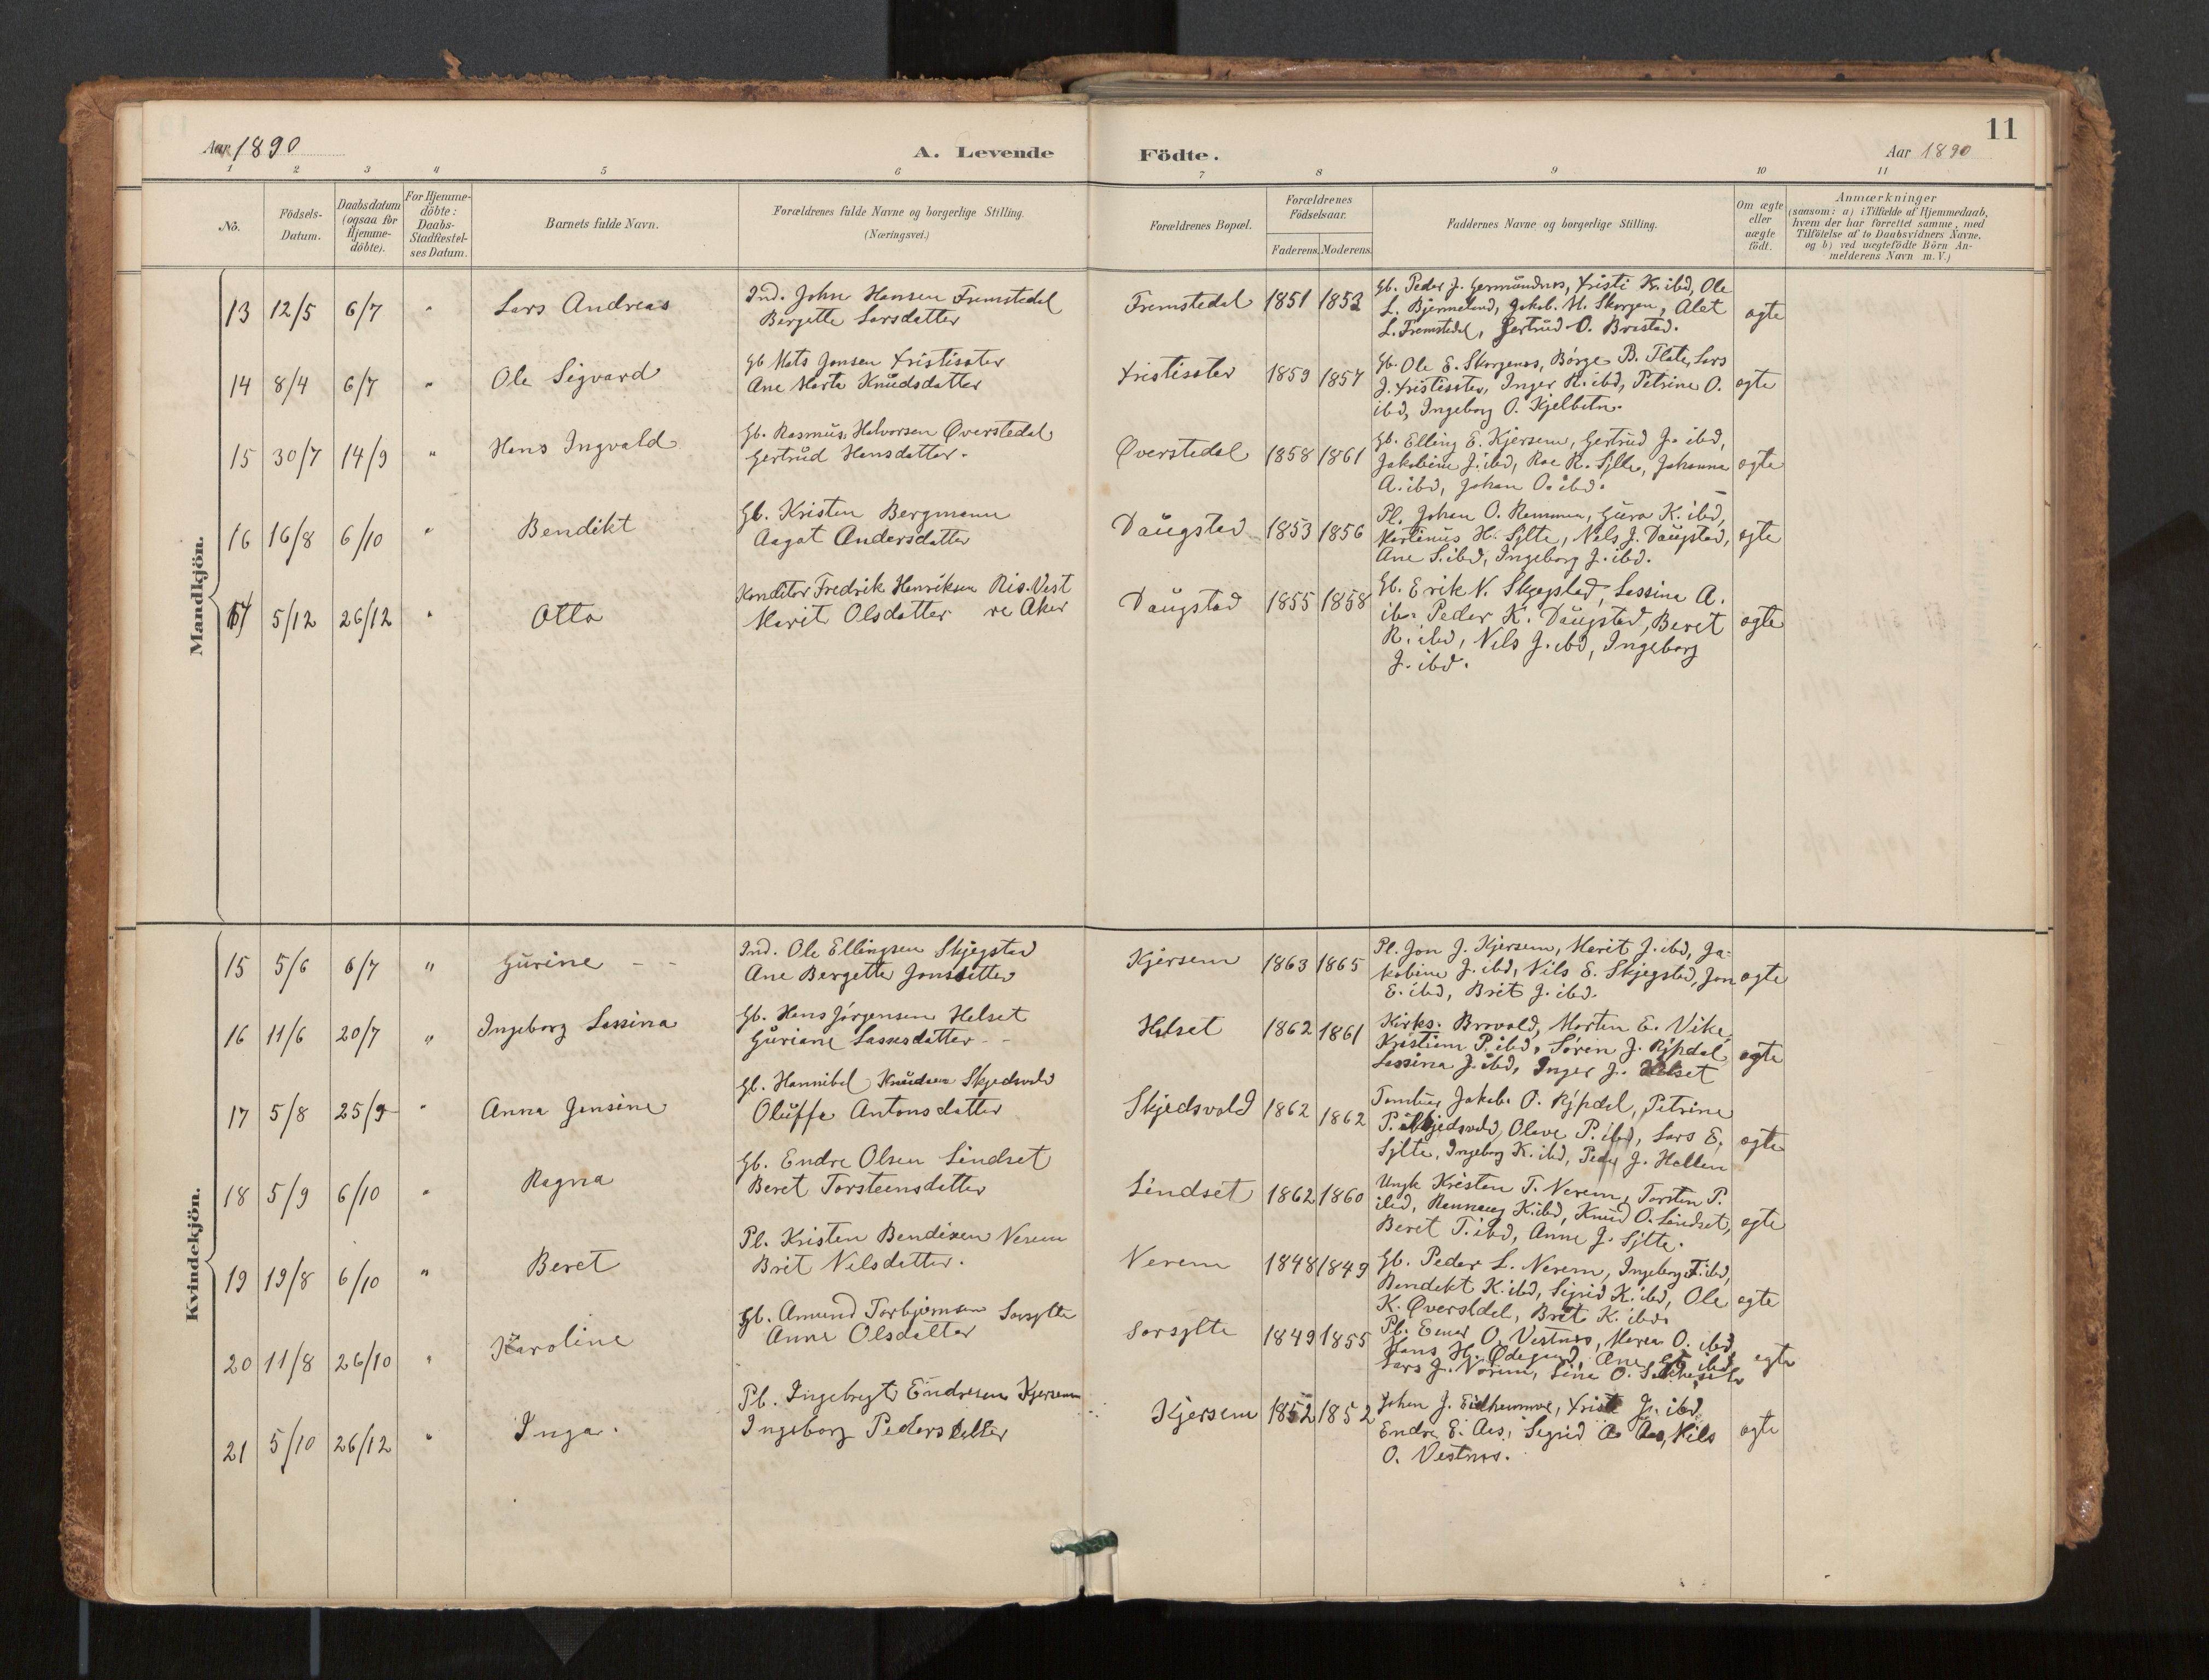 11
Aar 1890
A. Levende
Födte.
Aar 1890
1 2 3 4 5 6 7 8 9 10 11
No.
Födsels-
Datum.
Daabsdatum
(ogsaa for
Hjemme-
döbte).
For Hjemme-
döbte:
Daabs-
Stadfæstel-
ses Datum.
Barnets fulde Navn.
Forældrenes fulde Navne og borgerlige Stilling.
(Næringsvei.)
Forældrenes Bopæl.
Forældrenes
Födselsaar.
Faderens. Moderens.
Faddernes Navne og borgerlige Stilling.
Om ægte
eller
uægte
födt.
Anmærkninger
(saasom: a) i Tilfælde af Hjemmedaab,
hvem der har forrettet samme, med
Tilföielse af to Daabsvidners Navne,
og b) ved uægtefödte Börn An-
melderens Navn m. V.)
Mandkjön.
13 12/5 6/7 " Lars Andreas
Ind. John Hansen Fremstedal
Bergette Larsdatter
Fremstedal 1851 1853
Gb. Peder J. Germundnes, Kristi K. ibd, Ole
L. Bjermeland, Jakob. M. Skorgen, Alet
L. Fremstedal, Gertrud O. Brastad.
ægte
14 8/4 6/7 " Ole Sigvard
Gb Mats Jonsen Kristisæter
Ane Marta Knudsdatter
Kristisæter 1859 1857
Gb. Ole E. Skorgenes, Børge B. Flate, Lars
J. Kristisæter, Inger H. ibd, Petrine O.
ibd, Ingeborg O. Kjelbotn.
ægte
15 30/7 14/9 " Hans Ingvald
Gb. Rasmus Halvorsen Øverstedal
Gertrud Hansdatter.
Øverstedal 1858 1861
Gb. Elling E. Kjersem, Gertrud J. ibd,
Jakobine J. ibd, Roe R. Sylte, Johanna
A. ibd, Johan O. ibd.
ægte
16 16/8 6/10 " Bendikt
Gb. Kristen Bergmann
Aagot Andersdatter
Daugstad 1853 1856
Pl. Johan O. Remmem, Gura K. ibd,
Martinus H. Sylte, Nils J. Daugstad,
Ane S. ibd, Ingeborg J. ibd.
ægte
17 5/12 26/12 " Otto
Konditor Fredrik Henriksen Ris. Vest
Marit Olsdatter re Aker
Daugstad 1855 1858
Gb. Erik N. Skjegstad, Lassina A.
ib. Peder K. Daugstad, Beret
R. ibd, Nils J. ibd, Ingeborg
J. ibd.
ægte
Kvindekjön.
15 5/6 6/7 " Gurine
Ind. Ole Ellingsen Skjegstad
Ane Bergette Jonsdatter
Kjersem 1863 1865
Pl. Jon J. Kjersem, Marit J. ibd, Ja-
kobine J. ibd, Nils E. Skjegstad, Jon
E. ibd, Brit J. ibd.
ægte
16 11/6 20/7 " Ingeborg Lassina
Gb. Hans Jørgensen Helset
Guriane Lassesdatter
Helset 1862 1861
Kirks. Brovold, Morten E. Vike,
Kristium P. ibd, Søren J. Rypdal
Lassina J. ibd, Inger J. Helset
ægte
17 5/8 25/9 " Anna Jensine
Gb. Hannibal Knudsen Skjedsvold
Oluffa Antonsdatter
Skjedsvold 1862 1862
Jakob O. Rypdal, Petrine
P. Skjedsvold, Olave P. ibd, Lars E.
Sylte, Ingeborg K. ibd, Peder J. Hallen
ægte
18 5/9 6/10 " Ragna
Gb. Endre Olsen Lindset
Beret Torsteensdatter
Lindset 1862 1860
Ungk Kristen T. Nerem, Torsten P.
ibd, Rannaug K. ibd, Knud O. Lindset,
Beret T. ibd, Anne J. Sylte.
ægte
19 19/8 6/10 " Beret
Pl. Kristen Bendixen Nerem
Brit Nilsdatter.
Nerem 1848 1849
Gb. Peder L. Nerem, Ingeborg T. ibd,
Bendekt K. ibd, Sigrid K. ibd, Ole
K. Øverstdal, Brit K. ibd.
ægte
20 11/8 26/10 " Karoline
Gb. Amund Torbjørnsen Sorsylte
Anne Olsdatter
Sorsylte 1849 1855
Pl. Einar O. Vestnes, Maren O. ibd,
Hans H. Ødegaard, Ane ibd,
Lars J. Nerem, Lina O.
ægte
21 5/10 26/12 " Inga.
Pl. Ingebrigt Endresen Kjersem
Ingeborg Pedersdatter
Kjersem 1852 1852
Johan J. Eidhammer, Kristi J. ibd,
Endre E. Aas, Sigrid A. Aas, Nils
O. Vestnes.
ægte